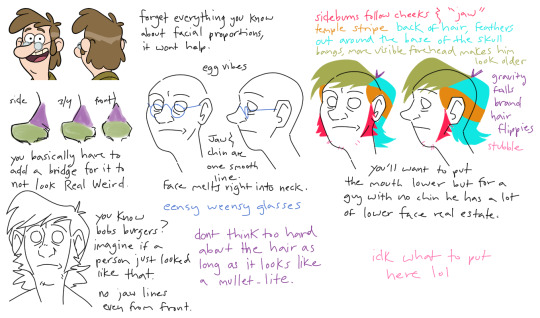 forget everything you know
about facial proportions,
it wont help.
sideburns follow cheeks } "jaw"
temple stripe back of hair, feathers
out around the base of the skull
bangs, more visible forehead, makes him
look older
egg vibes
side
3/4
front
gravity
falls
brand
hair
flippies
stubble
you basically have to
add a bridge for it to
not look Real Weird.
Jaw &
chin are
one smooth
line.
Face melts right into neck.
eensy weensy glasses
you'll want to put
the mouth lower but for a
guy with no chin he has a lot
of lower face real estate.
you know
bobs burgers?
imagine if a
person just looked
like that.
no jaw lines
even from front.
dont think too hard
about the hair as
long as it looks like
a mullet-lite.
idk what to put
here lol